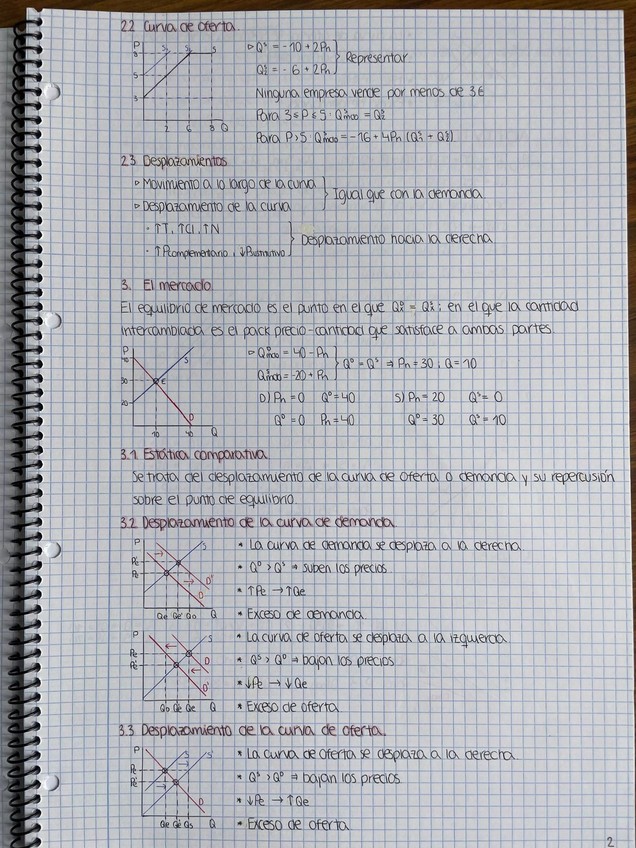 2.2 Curva de oferta.
▹ Qˢ₁ = -10 + 2Pn
Qˢ₂ = -6 + 2Pn } Representar
Ninguna empresa vende por menos de 3€
Para 3 ≤ P ≤ 5 · Qˢmdo = Qˢ₂
Para P > 5 · Qˢmdo = -16 + 4Pn (Qˢ₁ + Qˢ₂)
P
5
3
2 6 8 Q
2.3 Desplazamientos
▹ Movimiento a lo largo de la curva
▹ Desplazamiento de la curva } Igual que con la demanda
· ↑T, ↑CI, ↑N
· ↑Pcomplementario, ↓Psustitutivo } Desplazamiento hacia la derecha
3. El mercado
El equilibrio de mercado es el punto en el que en el que la cantidad
intercambiada es el pack precio-cantidad que satisface a ambas partes
▹ Qᴰmdo = 40 - Pn
Qˢmdo = -20 + Pn } Qᴰ = Qˢ ⇒ Pn = 30 ; Q = 10
D) Pn = 0 Qᴰ = 40 S) Pn = 20 Qˢ = 0
Qᴰ = 0 Pn = 40 Qᴰ = 30 Qˢ = 10
P
40
30
20
S
E
D
10 40 Q
3.1 Estática comparativa
Se trata del desplazamiento de la curva de oferta o demanda y su repercusión
sobre el punto de equilibrio.
3.2 Desplazamiento de la curva de demanda
P
Pe'
Pe
S
D'
D
Qe Qe' Qo Q
* La curva de demanda se desplaza a la derecha
* Qᴰ > Qˢ → suben los precios
* ↑Pe → ↑Qe
* Exceso de demanda.
P
Pe
Pe'
S
D
D'
Qo Qe' Qe Q
* La curva de oferta se desplaza a la izquierda
* Qˢ > Qᴰ → bajan los precios
* ↓Pe → ↓Qe
* Exceso de oferta
3.3 Desplazamiento de la curva de oferta.
P
Pe
Pe'
S S'
D
Qe Qe' Qs Q
* La curva de oferta se desplaza a la derecha
* Qˢ > Qᴰ → bajan los precios
* ↓Pe → ↑Qe
* Exceso de oferta
2